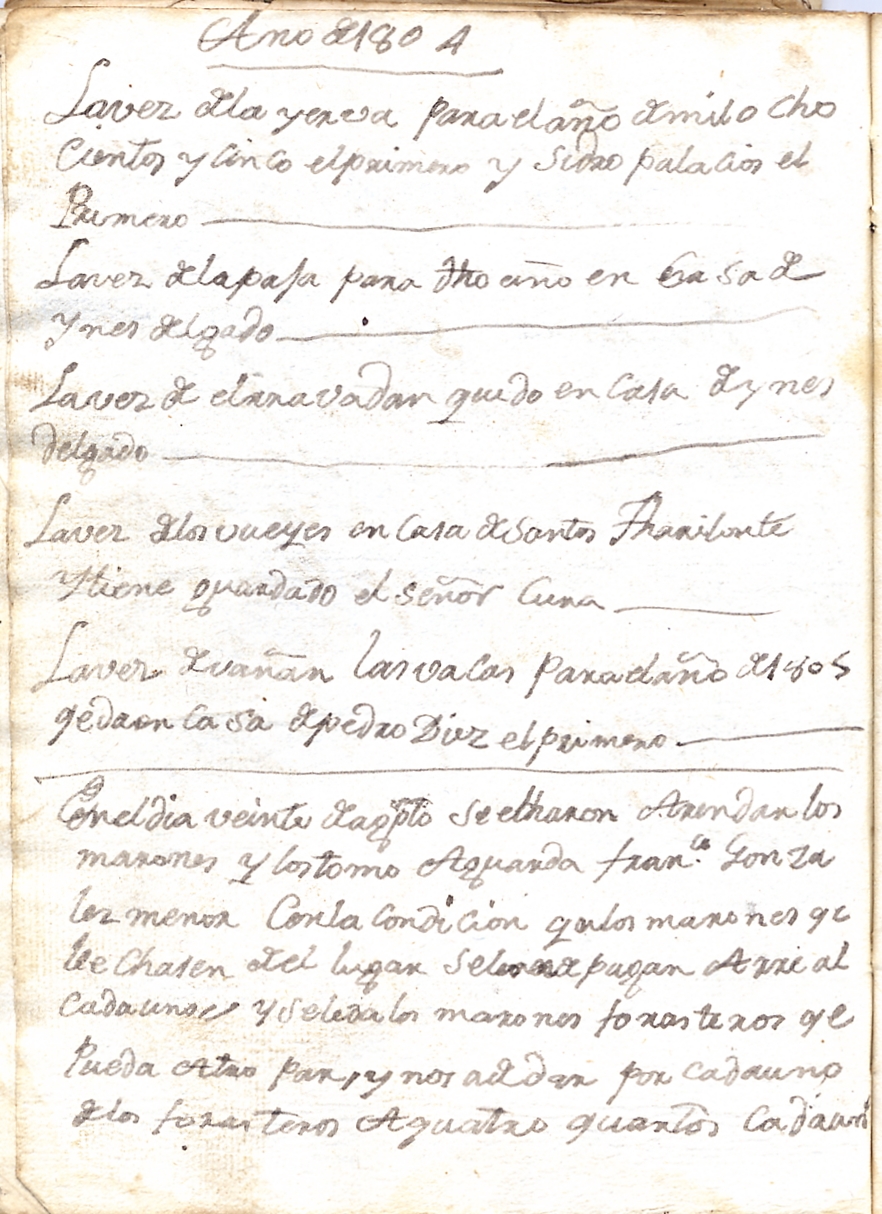 Ano de 1804
La vez de la yerva para el año de mil ocho
cientos y cinco el primero ysidro palacios el
Primero
La vez de la paja para dho año en Casa de
ynes delgado
La vez de el rravadan quedo en Casa de ynes
delgado
La vez de los vueyes en Casa de Santos
y tiene guardado el señor Cura
La vez de vañan las vacas para el año de 1805
qeda en Casa de pedro Diez el primero
en el dia veinte de agosto se echaron Arendar los
marones y los tomo Aguarda fran.co Gonza
lez menor Con la Condicion que los marones qe
se echasen del lugar se le pagan A rreal
cada uno y se le da los marones forasteros qe
Pueda Atraer par, y nos a de dar por cada uno
de los forasteros A quatro quartos Cada uno